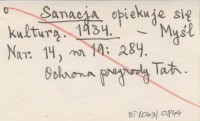 o Sanacja opiekuje się
kulturą. 1934. – Myśl
Nar. 14, nr 19: 284.
Ochrona przyrody Tatr.